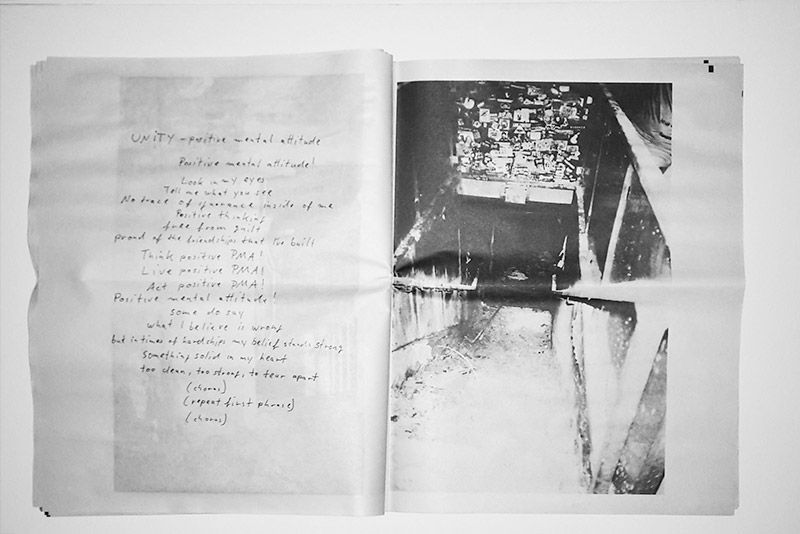 UNITY - positive mental attitude
Positive mental attitude!
Look in my eyes
Tell me what you see
No trace of ignorance inside of me
Positive thinking
free from guilt
proud of the friendships that I've built
Think positive PMA!
Live positive PMA!
Act positive PMA!
Positive mental attitude!
some do say
what I believe is wrong
but in times of hardships my belief stands strong
something solid in my heart
too clean, too strong, to tear apart
(chorus)
(repeat first phrase)
(chorus)